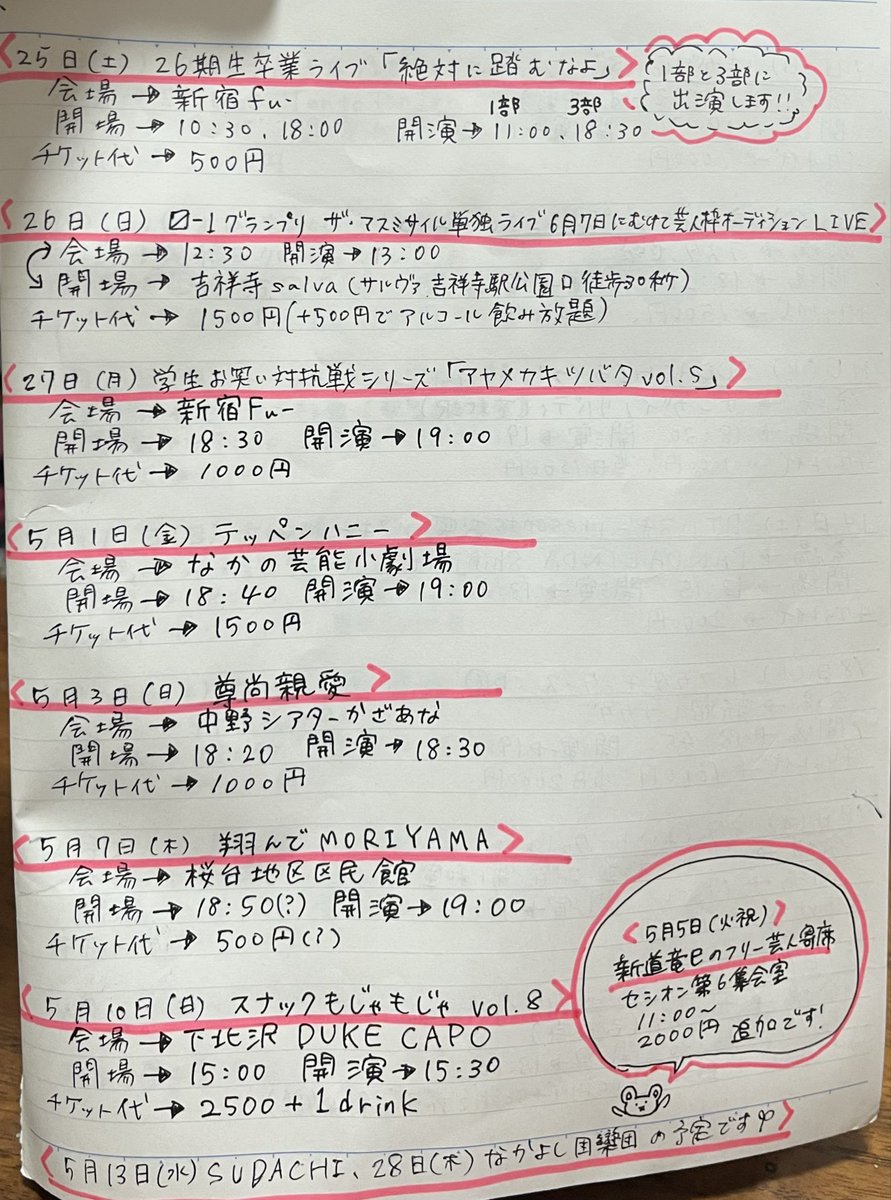 25日(土) 26期生卒業ライブ「絶対に踏むなよ」
1部と3部に
出演します!!
会場→新宿fu-
1部 3部
開場→10:30、18:00 開演→11:00、18:30
チケット代→500円
26日(日) 0-1グランプリ ザ・マスミサイル単独ライブ6月7日にむけて芸人枠オーディションLIVE
会場→12:30 開演→13:00
開場→吉祥寺salva(サルヴァ 吉祥寺駅公園口徒歩30秒)
チケット代→1500円(+500円でアルコール飲み放題)
27日(月) 学生お笑い対抗戦シリーズ「アヤメカキツバタvol.5」
会場→新宿Fu-
開場→18:30 開演→19:00
チケット代→1000円
5月1日(金) テッペンハニー
会場→なかの芸能小劇場
開場→18:40 開演→19:00
チケット代→1500円
5月3日(日) 尊尚親愛
会場→中野シアターかざあな
開場→18:20 開演→18:30
チケット代→1000円
5月7日(木) 翔んでMORIYAMA
会場→桜台地区区民館
開場→18:50(?) 開演→19:00
チケット代→500円(?)
5月5日(火・祝)
新道竜巳のフリー芸人寄席
セシオン第6集会室
11:00～
2000円 追加です!
5月10日(日) スナックもじゃもじゃ vol.8
会場→下北沢 DUKE CAPO
開場→15:00 開演→15:30
チケット代→2500+1drink
5月13日(水)SUDACHI、28日(木)なかよし団の予定です